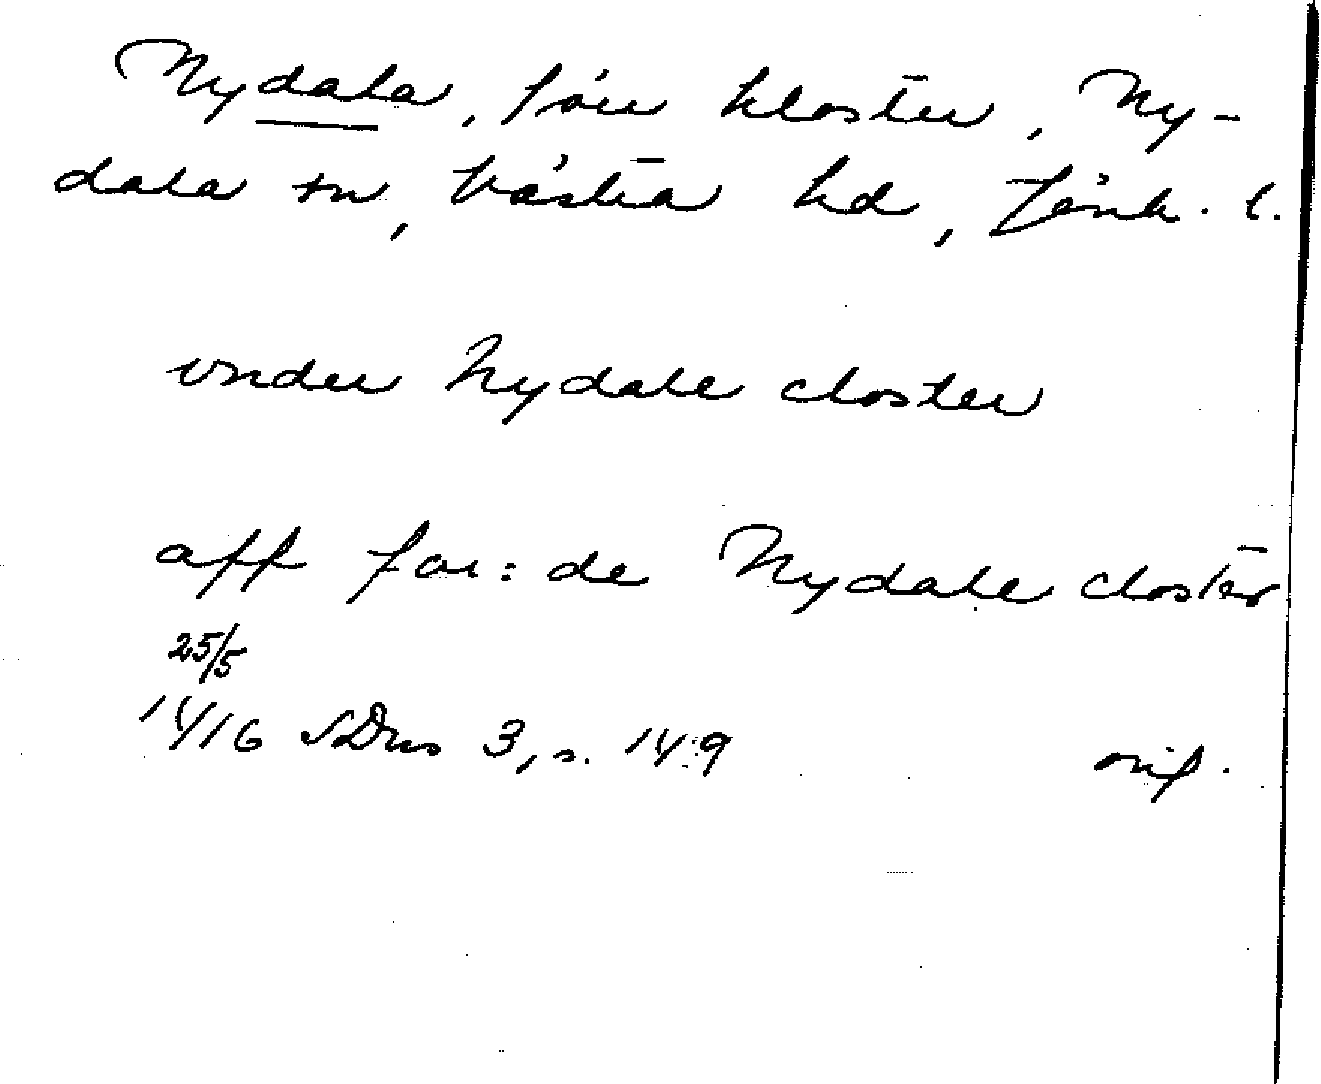 Nydala, förr kloster, Ny-
dala sn, Västra hd, Jönk. l.
vnder Nydale closter
aff for:de Nydale closter
25/5
1416 SDns 3, s. 149
orig.